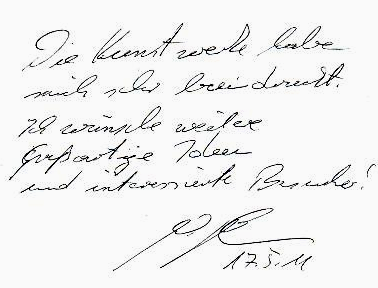 Die Kunstwerke habe
mich sehr beeindruckt.
Ich wünsche weitere
großartige Ideen
und interessierte Besucher!
17.5.11